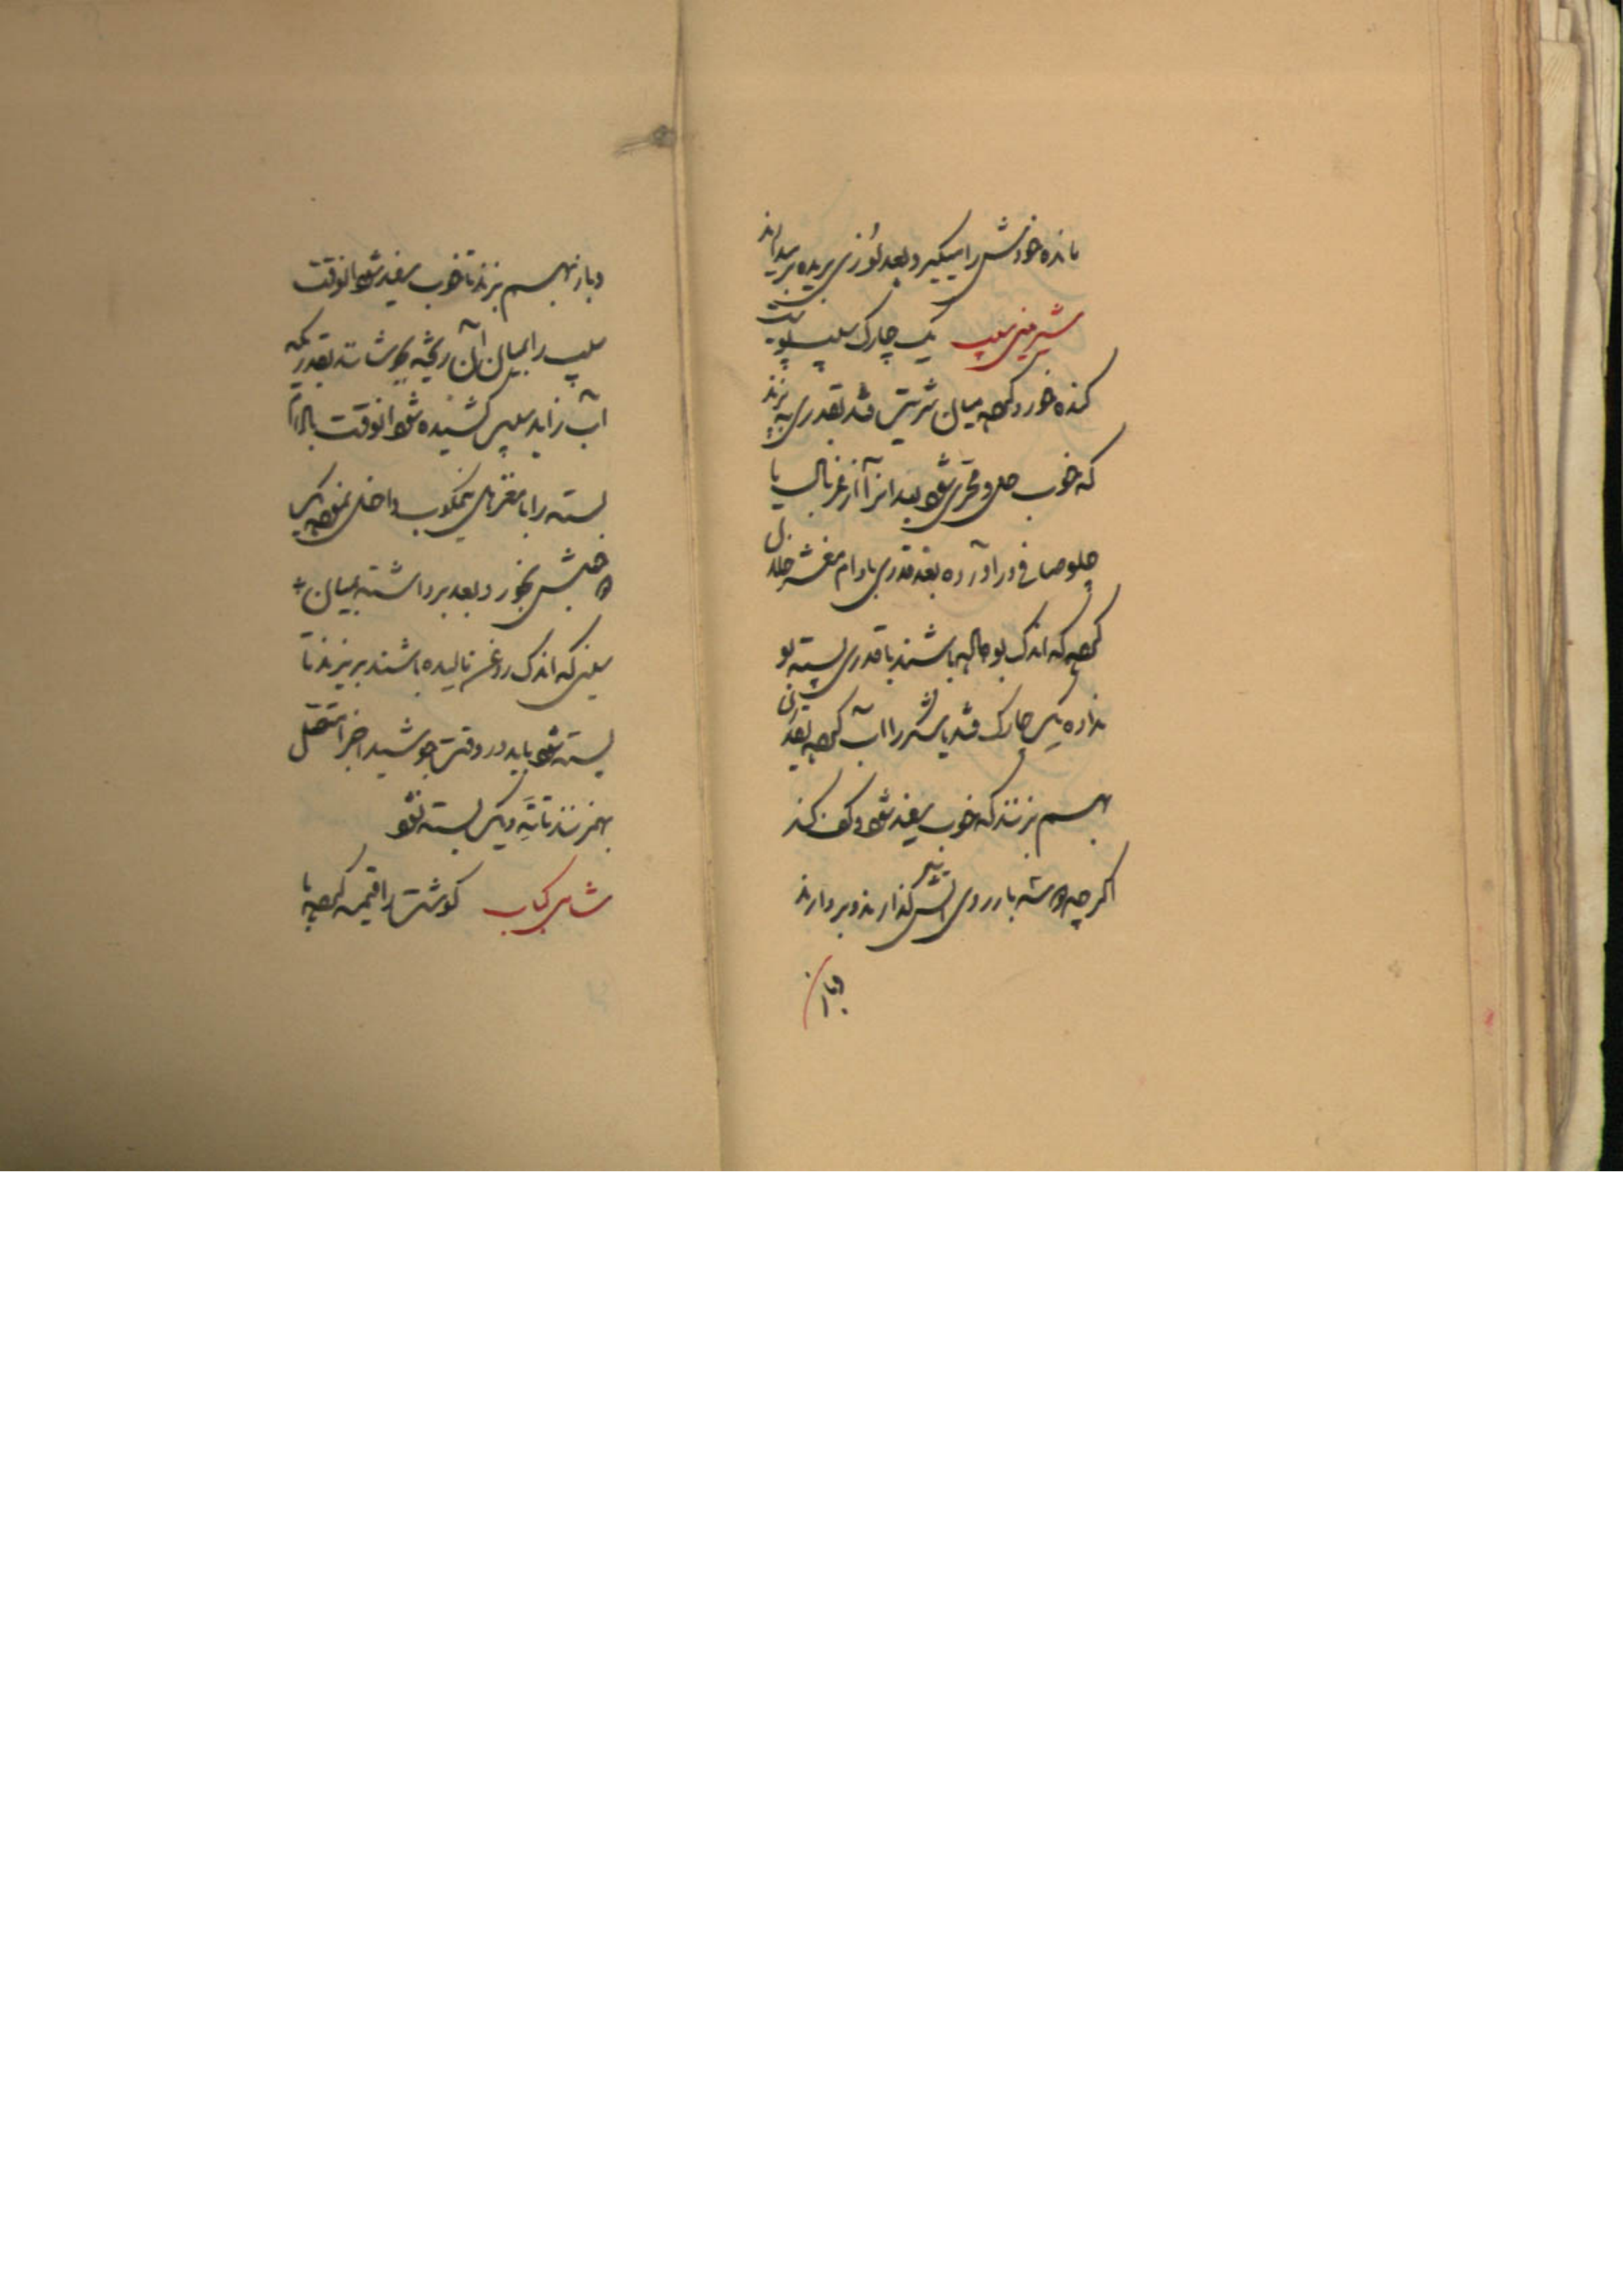 مانده خودش را میگیرد بعد لوزی بریده برمیدارند
شیرینی سیب یک چارک سیب پوست
کنده خورد کرده میان شربت قند بقدری بپزند
که خوب حل و قحری شود بعد از آن از غربال یا
چلو صافی در آورده بعد قدری بادام مغشر خلال
کرده که اندک بو داده باشند با قدری پسته بو
نداده یک چارک قند یا شکر را آب کرده بقدری
بهم بزنند که خوب سفید شود و کف کند
اگر چه دو سه بار روی آتش گذارند و بردارند
و باز
و باز بهم بزنند تا خوب سفید شود آنوقت
سیب را بمیان آن ریخته بجوشانند بقدریکه
آب زاید سیب کشیده شود آنوقت بادام
پسته را با مغزهای نیمکوب داخل نموده یک
دو جنبش بخورد بعد برداشته بمیان
سینی که اندک روغن مالیده باشند بریزند تا
بسته شود باید در وقت جوشیدن آخر متصل
بهم زنند تا ته دیگ بسته نشود
شامی کباب گوشت را قیمه کرده با